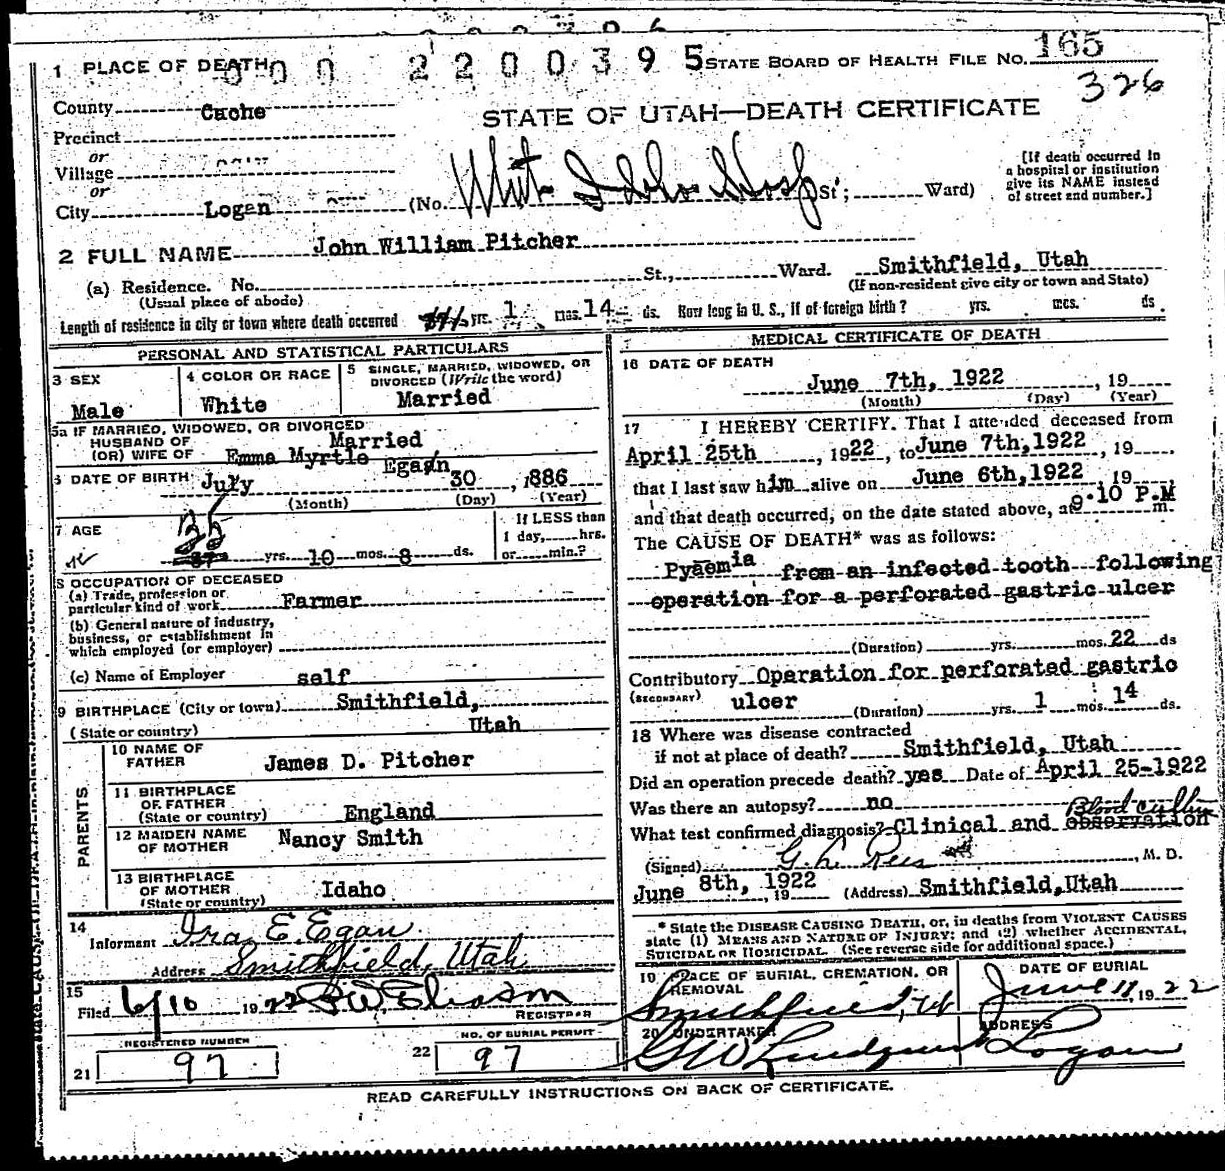 0002200395
1 PLACE OF DEATH
STATE BOARD OF HEALTH FILE NO. 165
326
County Cache
STATE OF UTAH—DEATH CERTIFICATE
Precinct
or
Village
or
City Logan (No. Hosp St; Ward)
[If death occurred in
a hospital or institution
give its NAME instead
of street and number.]
2 FULL NAME John William Pitcher
(a) Residence. No. St., Ward. Smithfield, Utah
(Usual place of abode) (If non-resident give city or town and State)
Length of residence in city or town where death occurred yrs. 1 mos. 14 ds. How long in U. S., if of foreign birth? yrs. mos. ds
PERSONAL AND STATISTICAL PARTICULARS
3 SEX
Male
4 COLOR OR RACE
White
5 SINGLE, MARRIED, WIDOWED, OR
DIVORCED (Write the word)
Married
5a IF MARRIED, WIDOWED, OR DIVORCED
HUSBAND OF Married
(OR) WIFE OF Emma Myrtle Egan
6 DATE OF BIRTH July 30, 1886
(Month) (Day) (Year)
7 AGE
35
37 yrs. 10 mos. 8 ds.
If LESS than
1 day, hrs.
or min.?
8 OCCUPATION OF DECEASED
(a) Trade, profession or
particular kind of work Farmer
(b) General nature of industry,
business, or establishment in
which employed (or employer)
(c) Name of Employer self
9 BIRTHPLACE (City or town) Smithfield,
(State or country) Utah
PARENTS
10 NAME OF
FATHER James D. Pitcher
11 BIRTHPLACE
OF FATHER
(State or country) England
12 MAIDEN NAME
OF MOTHER Nancy Smith
13 BIRTHPLACE
OF MOTHER
(State or country) Idaho
14
Informant Ira E. Egan
Address Smithfield, Utah
15
Filed 6/10 1922
REGISTRAR
REGISTERED NUMBER
21 97
NO. OF BURIAL PERMIT
22 97
MEDICAL CERTIFICATE OF DEATH
16 DATE OF DEATH
June 7th, 1922, 19
(Month) (Day) (Year)
17 I HEREBY CERTIFY. That I attended deceased from
April 25th, 1922, to June 7th, 1922, 19
that I last saw him alive on June 6th, 1922, 19
and that death occurred, on the date stated above, at 9.10 P.M m.
The CAUSE OF DEATH* was as follows:
Pyaemia from an infected tooth following
operation for a perforated gastric ulcer
(Duration) yrs. mos. 22 ds
Contributory Operation for perforated gastric
(SECONDARY) ulcer (Duration) yrs. 1 mos. 14 ds.
18 Where was disease contracted
if not at place of death? Smithfield, Utah
Did an operation precede death? yes Date of April 25-1922
Was there an autopsy? no
What test confirmed diagnosis? Clinical and observation
Blood culture
(Signed) G. L. Rees, M. D.
June 8th, 1922, 19 (Address) Smithfield, Utah
* State the DISEASE CAUSING DEATH, or, in deaths from VIOLENT CAUSES
state (1) MEANS AND NATURE OF INJURY; and (2) whether ACCIDENTAL,
SUICIDAL OR HOMICIDAL. (See reverse side for additional space.)
19 PLACE OF BURIAL, CREMATION, OR
REMOVAL
Smithfield, Ut
DATE OF BURIAL
June 11, 1922
20 UNDERTAKER
G W Lindquist
ADDRESS
Logan
READ CAREFULLY INSTRUCTIONS ON BACK OF CERTIFICATE.